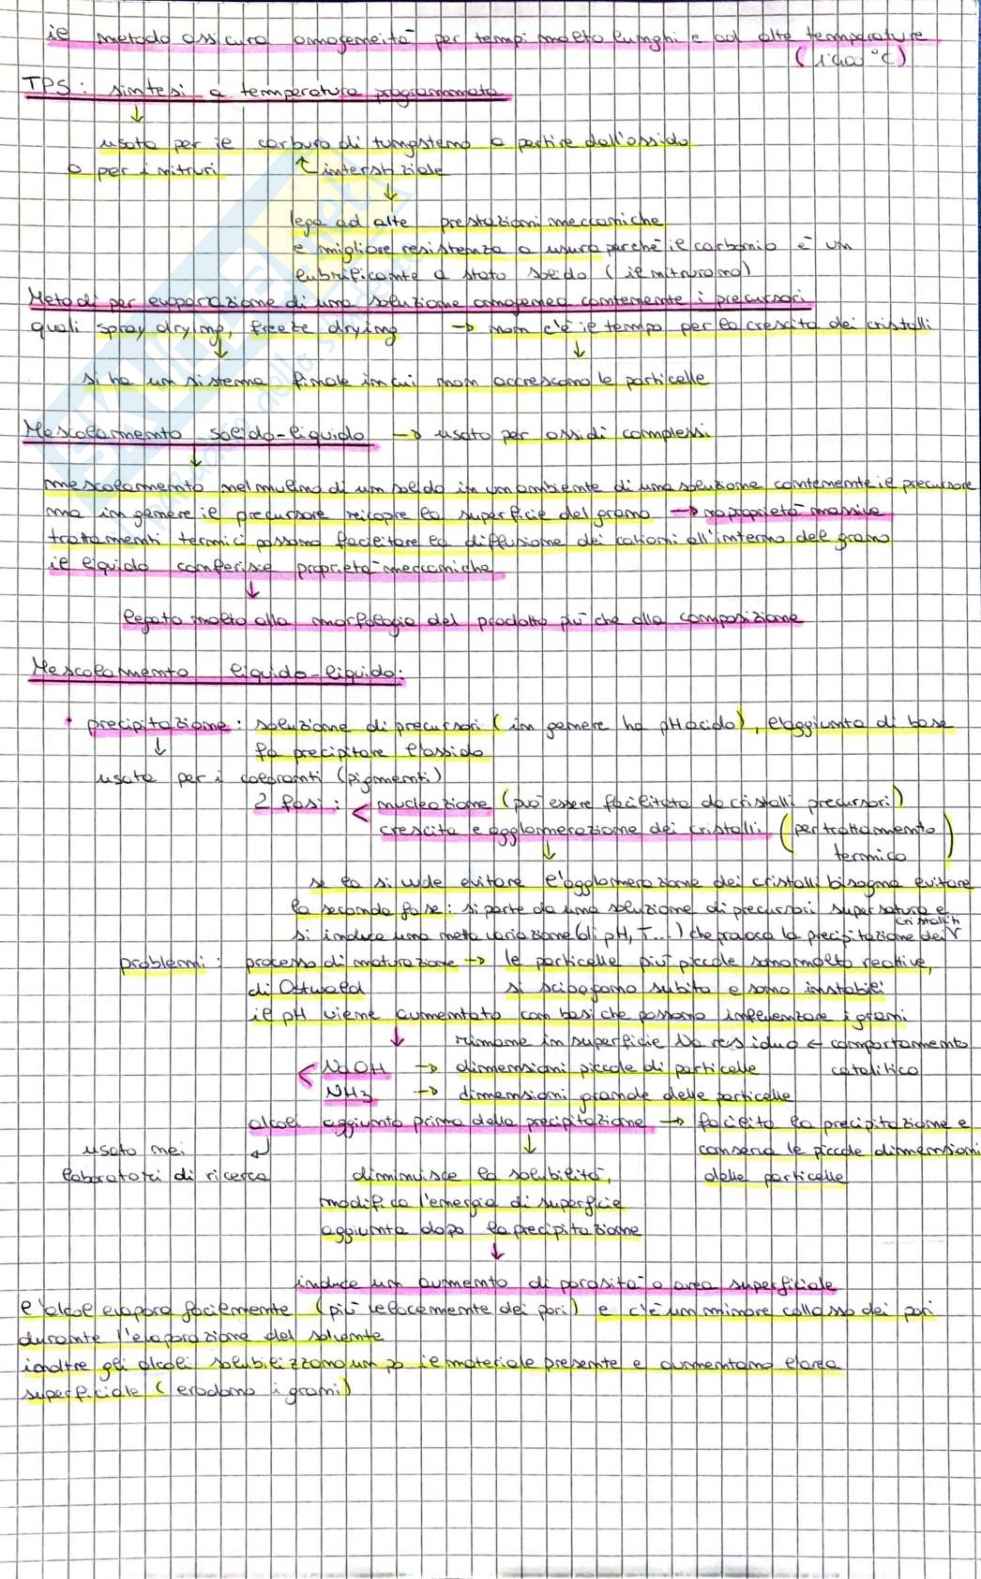 il metodo assicura omogeneità per tempi molto lunghi e ad alte temperature
TPS: sintesi a temperatura programmata
↓
usata per il carburo di tungsteno a partire dall'ossido
o per i nitruri ↑ interstiziale
↓
lega ad alte prestazioni meccaniche
e migliore resistenza a usura perché il carbonio è un
lubrificante a stato solido (il nitruro no)
Metodi per evaporazione di una soluzione omogenea contenente i precursori
quali spray drying, freeze drying → non c'è il tempo per la crescita dei cristalli
↓ ↓
si ha un sistema finale in cui non accrescono le particelle
Mescolamento solido-liquido → usato per ossidi complessi
↓
mescolamento nel mulino di un solido in un ambiente di una soluzione contenente il precursore
ma in genere il precursore ricopre la superficie del grano → no proprietà massive
trattamenti termici possono facilitare la diffusione dei cationi all'interno del grano
il liquido conferisce proprietà meccaniche
↓
legato molto alla morfologia del prodotto più che alla composizione
Mescolamento liquido-liquido:
• precipitazione: soluzione di precursori (in genere ha pH acido), l'aggiunta di base
↓ fa precipitare l'ossido
usata per i coloranti (pigmenti)
2 fasi: < nucleazione (può essere facilitata da cristalli precursori)
crescita e agglomerazione dei cristalli (per trattamento
termico)
↓
se la si vuole evitare l'agglomerazione dei cristalli bisogna evitare
la seconda fase: si parte da una soluzione di precursori supersatura e
si induce una netta variazione (di pH, T...) che provoca la precipitazione dei cristalli
problemi: processo di maturazione → le particelle più piccole sono molto reattive,
di Ostwald si sciolgono subito e sono instabili
il pH viene aumentato con basi che possono influenzare i grani
↓ rimane in superficie Na residuo ← comportamento
< NaOH → dimensioni piccole di particelle catalitico
NH3 → dimensioni grande delle particelle
alcol aggiunto prima della precipitazione → facilita la precipitazione e
usato nei ↓ consena le piccole dimensioni
laboratori di ricerca diminuisce la solubilità, delle particelle
modifica l'energia di superficie
aggiunta dopo la precipitazione
↓
induce un aumento di porosità o area superficiale
l'alcol evapora facilmente (più velocemente dei pori) e c'è un minore collasso dei pori
durante l'evaporazione del solvente
inoltre gli alcoli solubilizzano un po il materiale presente e aumentano l'area
superficiale (erodono i grani)